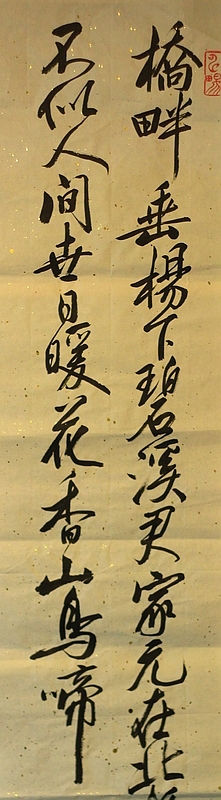 橋畔垂楊下碧溪君家元在北
不似人間世日暖花香山鳥啼